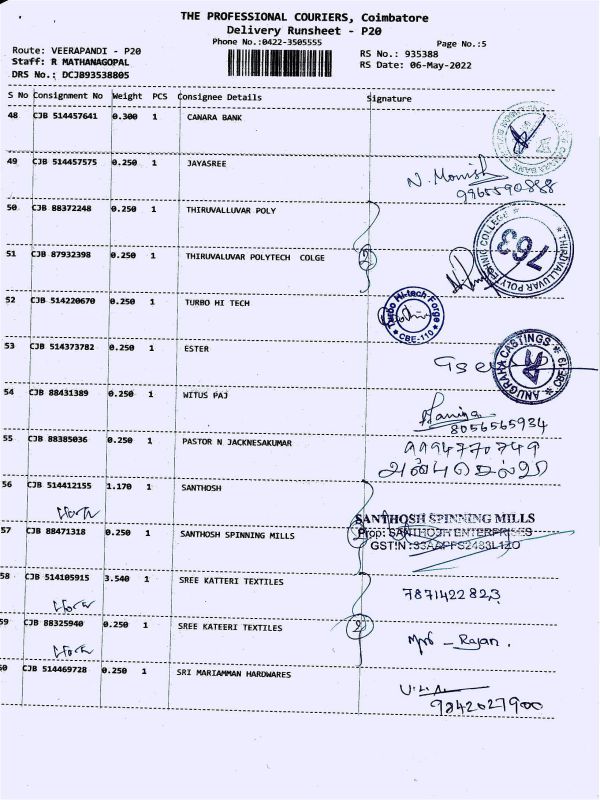 THE PROFESSIONAL COURIERS, Coimbatore
Delivery Runsheet - P20
Phone No.:0422-3505555
Page No.:5
Route: VEERAPANDI - P20
RS No.: 935388
Staff: R MATHANAGOPAL
RS Date: 06-May-2022
DRS No.: DCJB93538805
S No Consignment No Weight PCS Consignee Details Signature
48 CJB 514457641 0.300 1 CANARA BANK
49 CJB 514457575 0.250 1 JAYASREE
N. Monish
9965590888
50 CJB 88372248 0.250 1 THIRUVALLUVAR POLY
51 CJB 87932398 0.250 1 THIRUVALUVAR POLYTECH COLGE
2
THIRUVALLUVAR POLYTECHNIC COLLEGE
763
52 CJB 514220670 0.250 1 TURBO HI TECH
Turbo Hi-tech Forge
CBE-110
53 CJB 514373782 0.250 1 ESTER
ANUGRAHA CASTINGS
54 CJB 88431389 0.250 1 WITUS PAJ
8056565934
55 CJB 88385036 0.250 1 PASTOR N JACKNESAKUMAR
9994770749
56 CJB 514412155 1.170 1 SANTHOSH
57 CJB 88471318 0.250 1 SANTHOSH SPINNING MILLS
SANTHOSH SPINNING MILLS
Prop: SANTHOSH ENTERPRISES
58 CJB 514105915 3.540 1 SREE KATTERI TEXTILES
7871422823
59 CJB 88325940 0.250 1 SREE KATEERI TEXTILES
2
Rajan.
60 CJB 514469728 0.250 1 SRI MARIAMMAN HARDWARES
9842027900